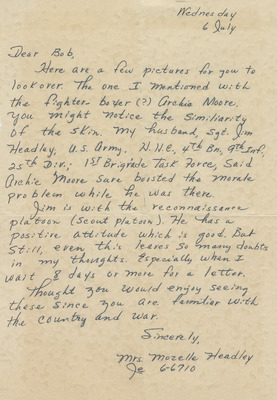 Wednesday
6 July
Dear Bob,
Here are a few pictures for you to
look over. The one I mentioned with
the fighter boxer (?) Archie Moore.
You might notice the Similiarity
of the skin. My husband, Sgt. Jim
Headley, U.S. Army. H.H.C. 4th Bn, 9th Inf.,
25th Div.; 1st Brigade Task Force, said
Archie Moore sure boosted the morale
problem while he was there.
Jim is with the reconnaissance
platoon (Scout platoon). He has a
positive attitude which is good. But
Still, even this leaves so many doubts
in my thoughts. Especially when I
wait 8 days or more for a letter.
Thought you would enjoy seeing
these since you are familiar with
the country and war.
Sincerely,
Mrs. Mozelle Headley
Je 6-6710